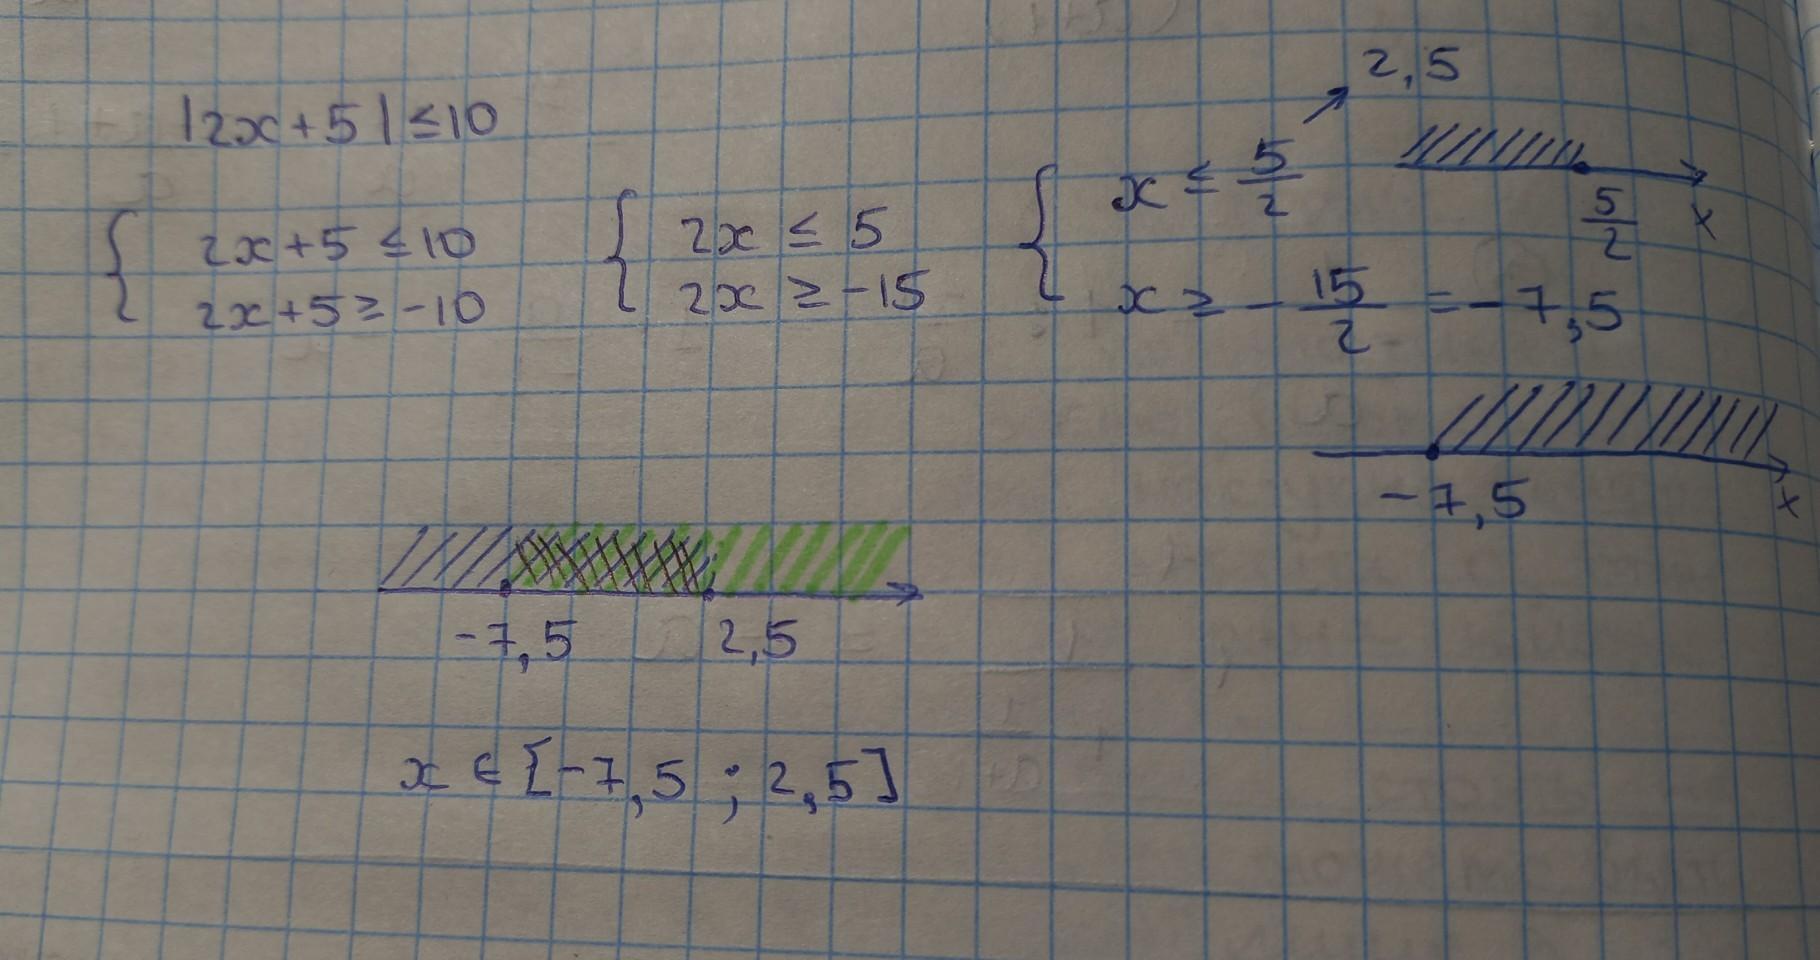 |2x+5|≤10
{ 2x+5≤10
2x+5≥-10
{ 2x ≤ 5
2x ≥ -15
{ x ≤ 5/2 ↗ 2,5
x ≥ - 15/2 = -7,5
5/2 x
-7,5 x
-7,5 2,5
x ∈ [-7,5 ; 2,5]